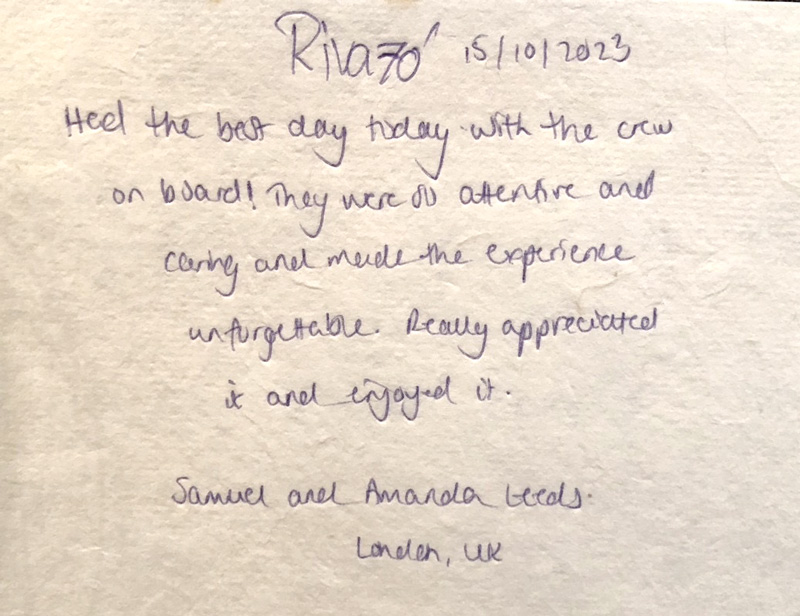 Riva 70' 15/10/2023
Heel the best day today with the crew
on board! They were so attentive and
caring and made the experience
unforgettable. Really appreciated
it and enjoyed it.
Samuel and Amanda Leeds.
London, UK